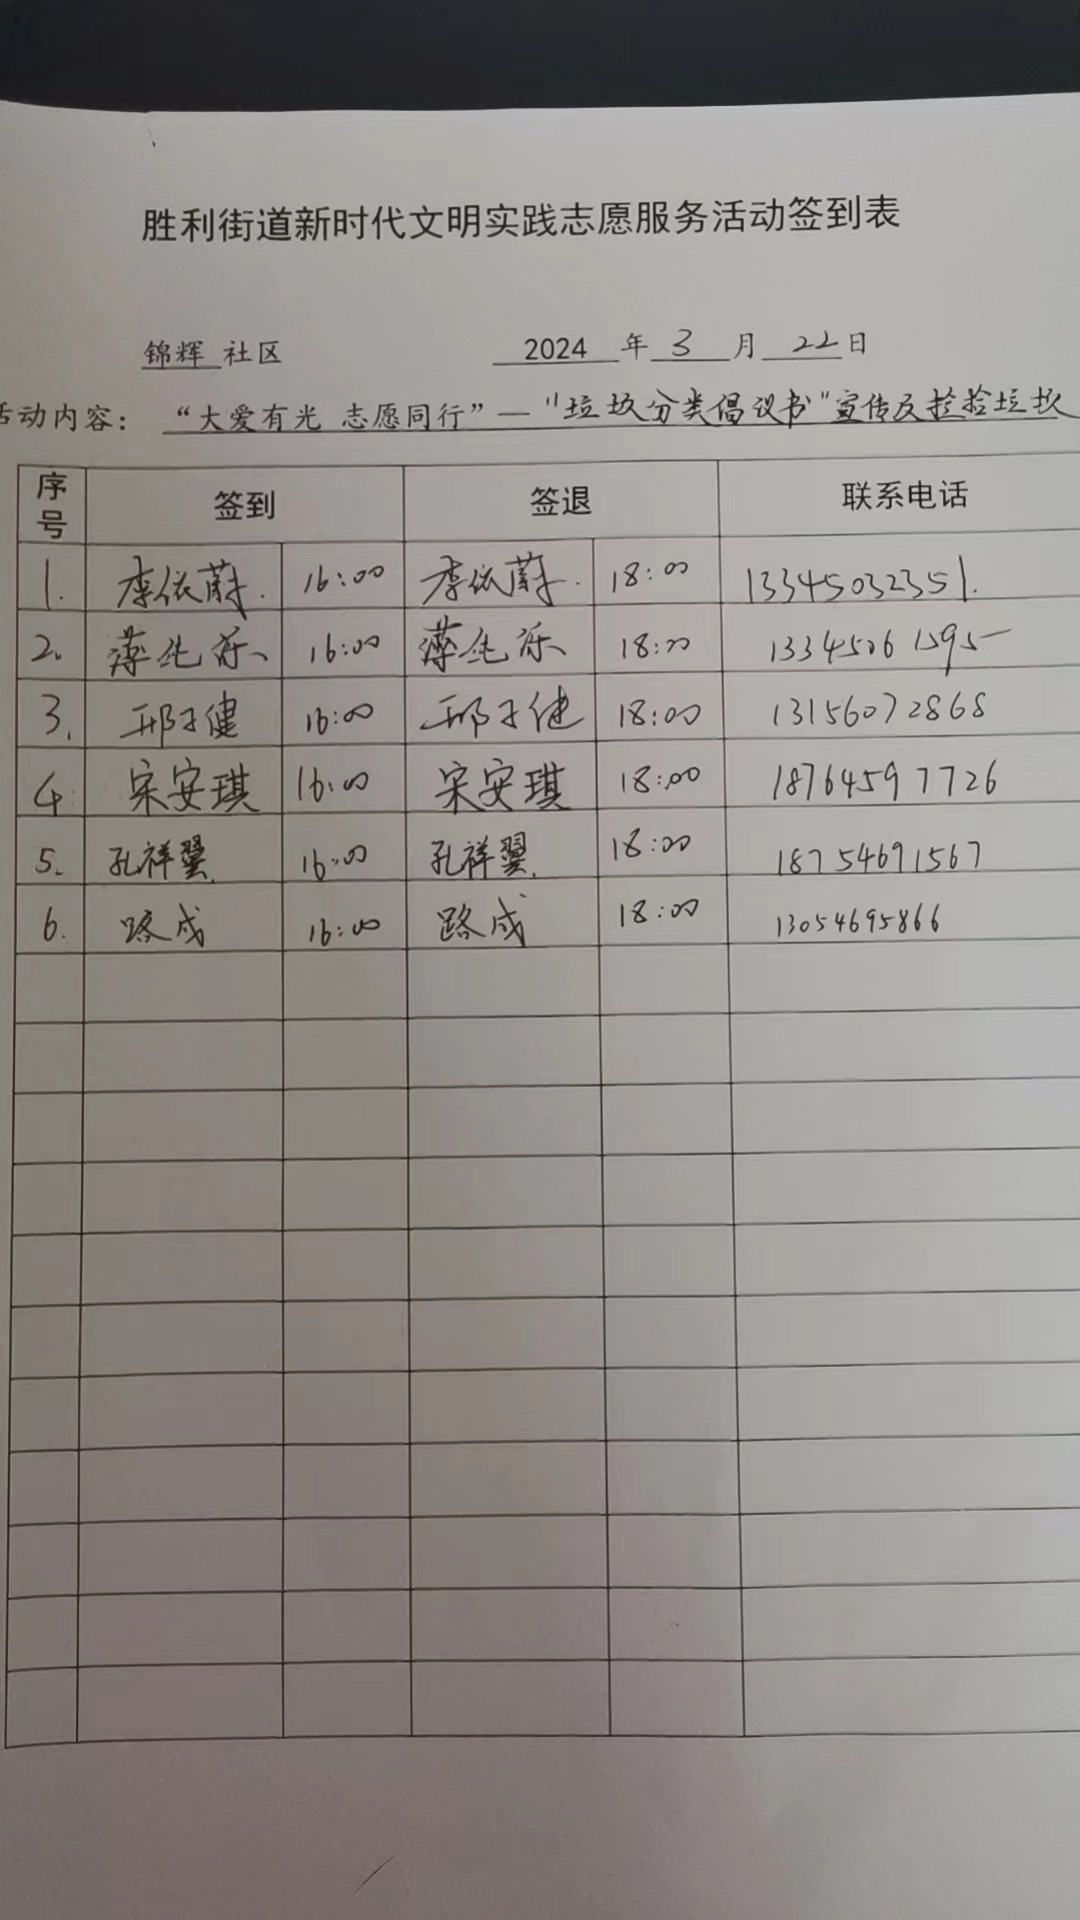 胜利街道新时代文明实践志愿服务活动签到表
锦辉 社区 2024 年 3 月 22 日
活动内容：“大爱有光 志愿同行”—“垃圾分类倡议书”宣传及捡拾垃圾
序号 签到 签退 联系电话
1. 李依蔚. 16:00 李依蔚. 18:00 13345032351.
2. 薄纯 16:00 薄纯 18:00 13345061595
3. 邢子健 16:00 邢子健 18:00 13156072868
4. 宋安琪 16:00 宋安琪 18:00 18764597726
5. 孔祥翼. 16:00 孔祥翼. 18:00 18754691567
6. 路成 16:00 路成 18:00 13054695866